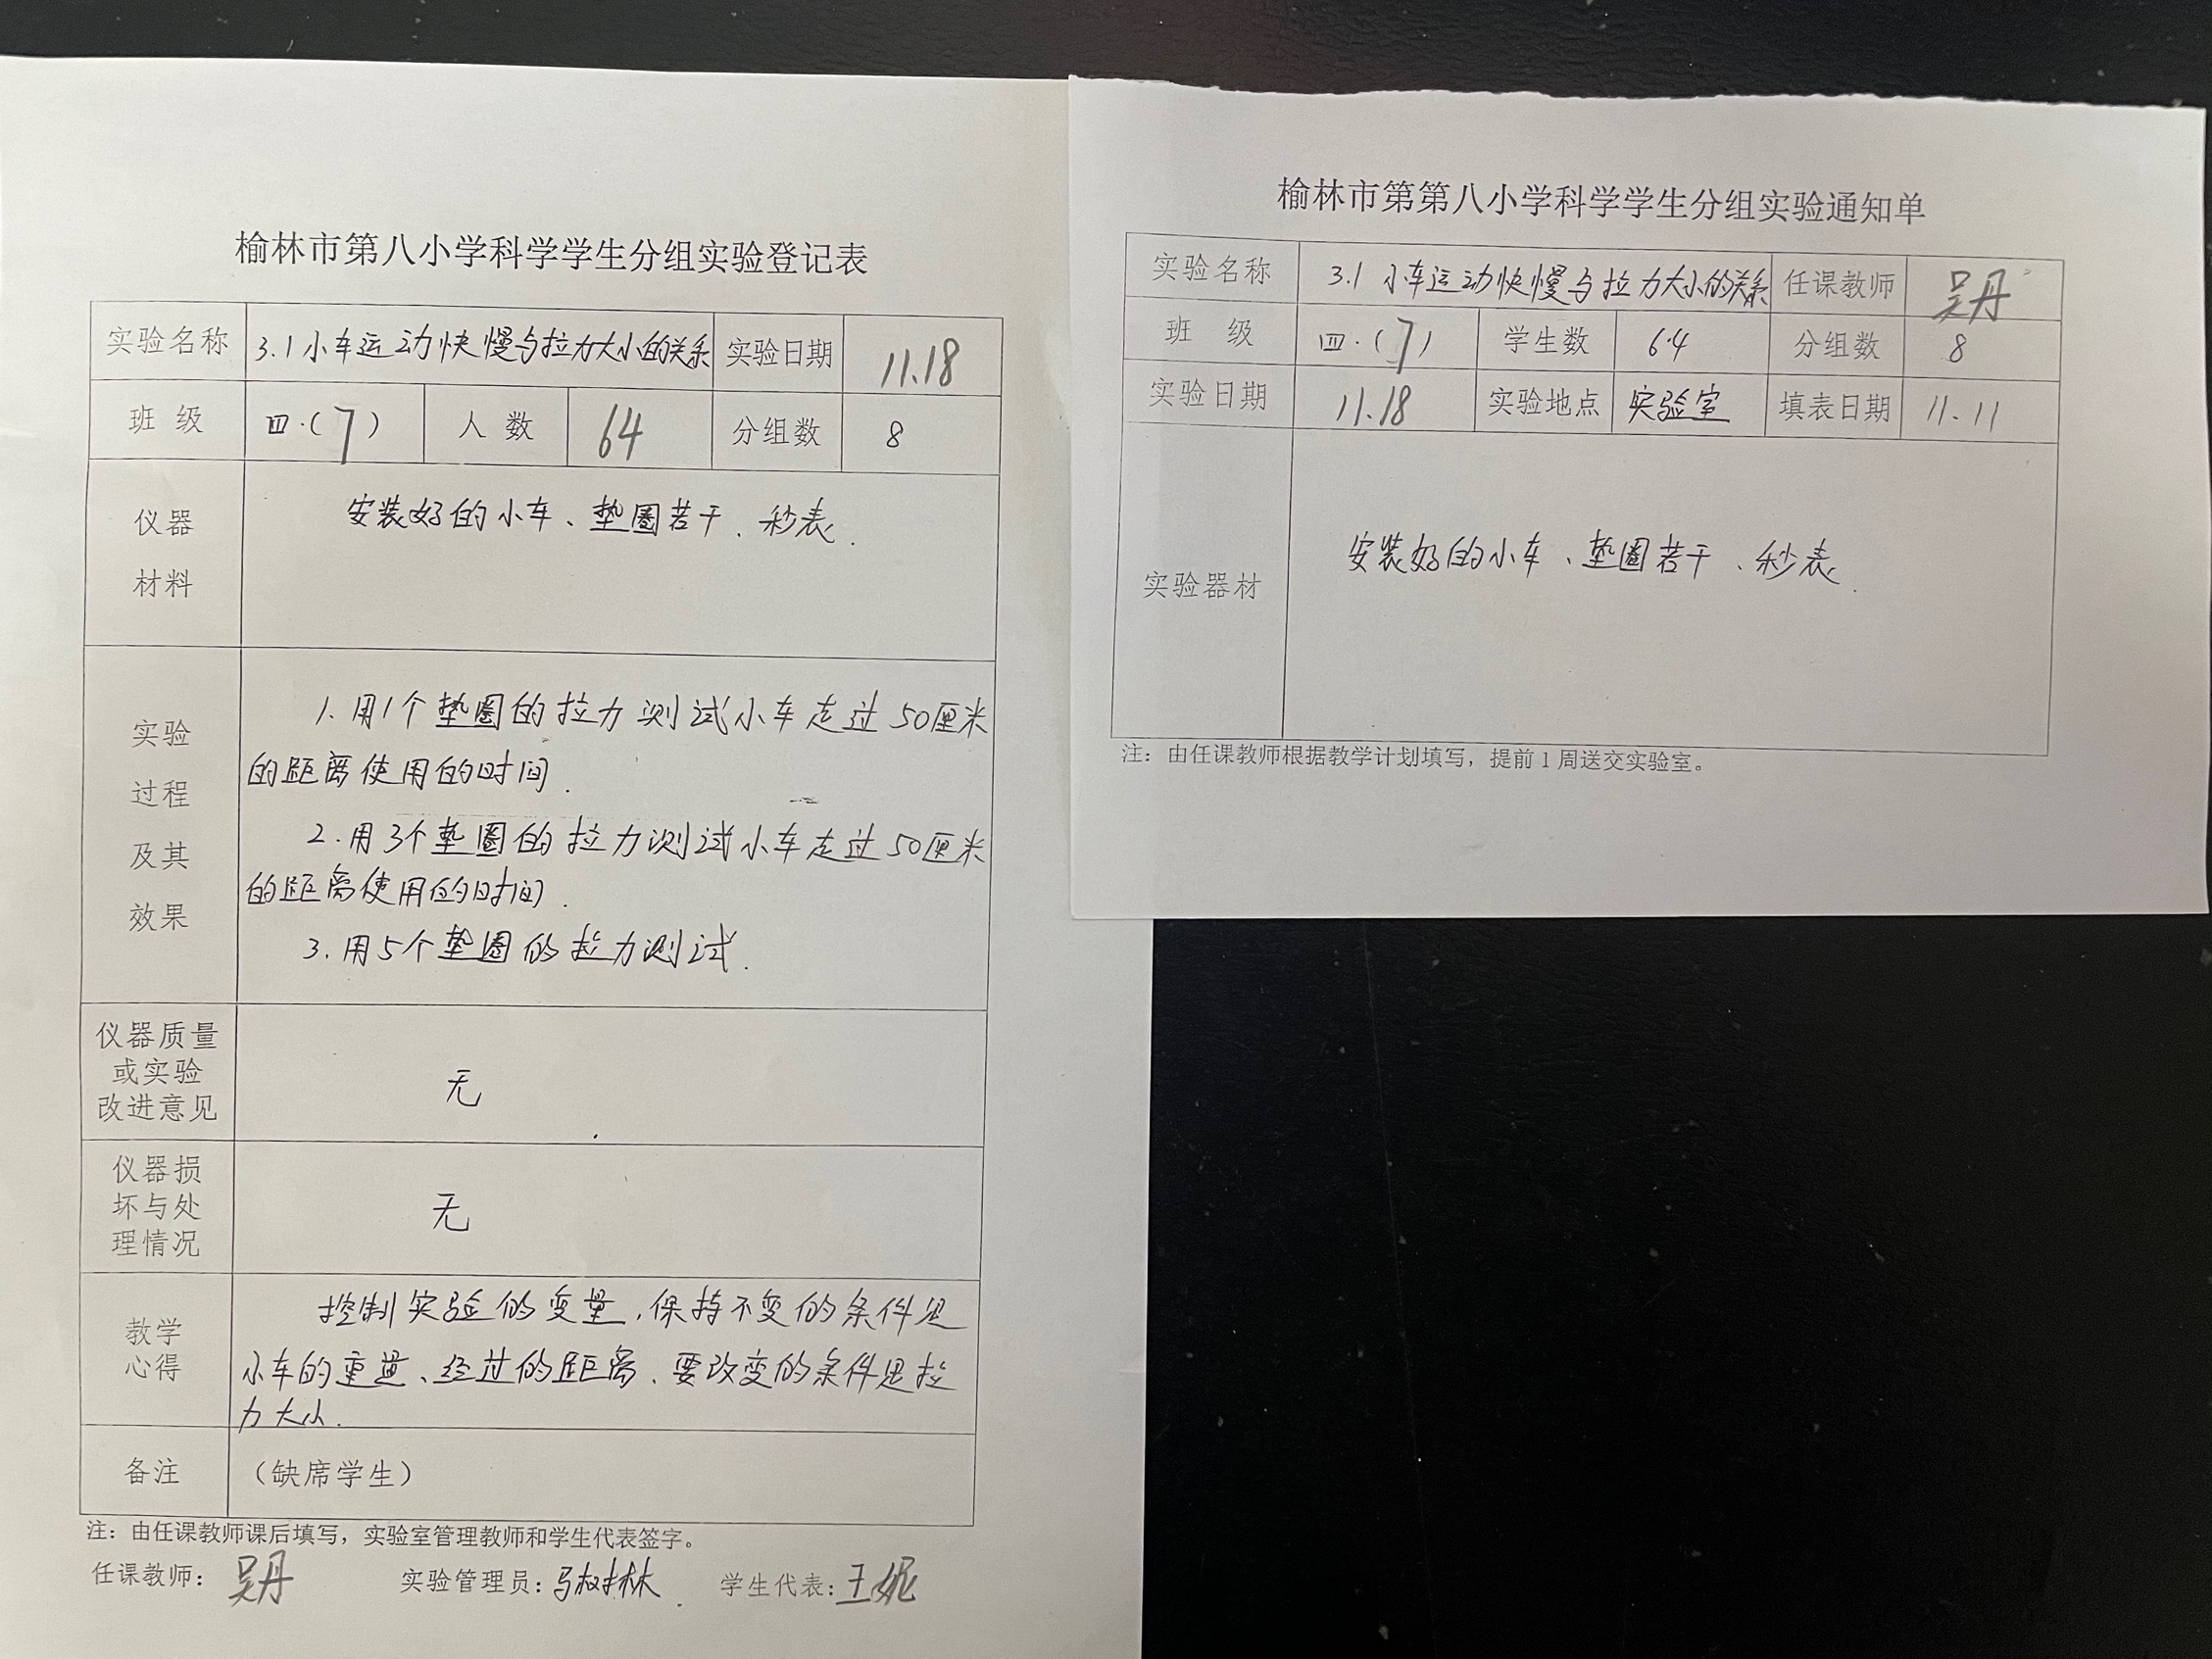 榆林市第八小学科学学生分组实验登记表
实验名称 3.1小车运动快慢与拉力大小的关系 实验日期 11.18
班 级 四·(7) 人 数 64 分组数 8
仪器
材料
安装好的小车、垫圈若干、秒表.
实验
过程
及其
效果
1.用1个垫圈的拉力测试小车走过50厘米
的距离使用的时间.
2.用3个垫圈的拉力测试小车走过50厘米
的距离使用的时间.
3.用5个垫圈的拉力测试.
仪器质量
或实验
改进意见
无
仪器损
坏与处
理情况
无
教学
心得
控制实验的变量,保持不变的条件是
小车的重量、经过的距离、要改变的条件是拉
力大小.
备注 (缺席学生)
注:由任课教师课后填写,实验室管理教师和学生代表签字。
任课教师: 吴丹 实验管理员: 学生代表:王妮
榆林市第第八小学科学学生分组实验通知单
实验名称 3.1 小车运动快慢与拉力大小的关系 任课教师 吴丹
班 级 四·(7) 学生数 64 分组数 8
实验日期 11.18 实验地点 实验室 填表日期 11.11
实验器材 安装好的小车、垫圈若干、秒表.
注:由任课教师根据教学计划填写,提前1周送交实验室。